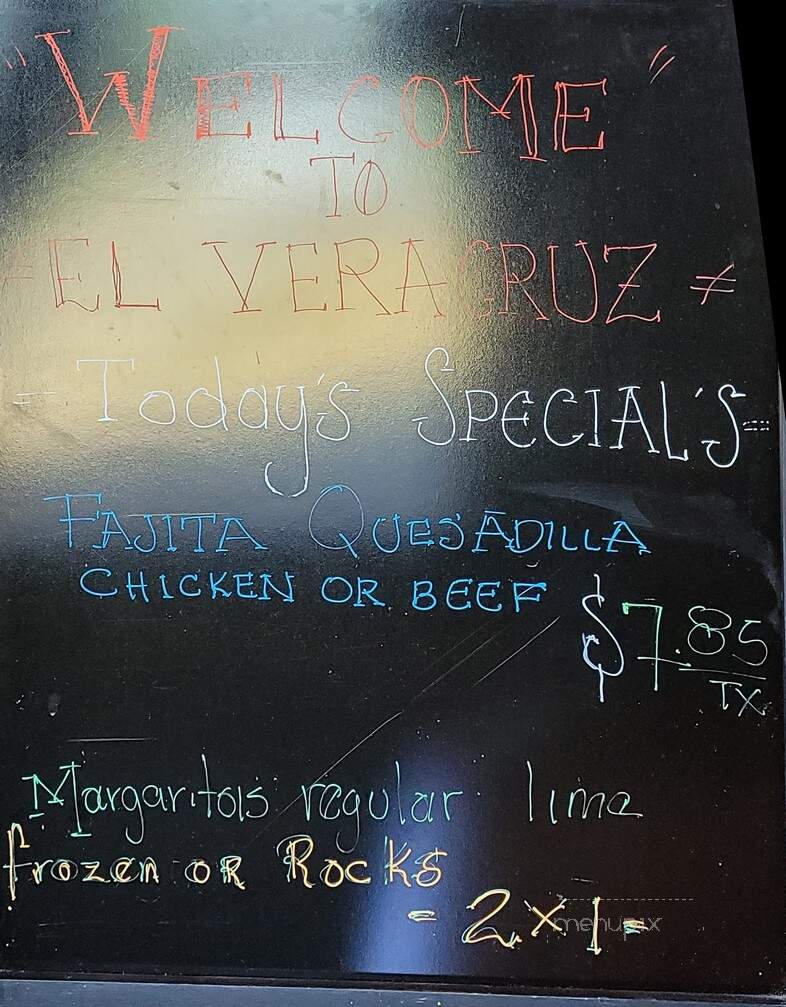 "WELCOME"
TO
=EL VERACRUZ=
= Today's SPECIAL'S=
FAJITA QUESADILLA
CHICKEN OR BEEF
$7.85
TX
Margaritas regular lime
frozen or Rocks
= 2x1=
menupix